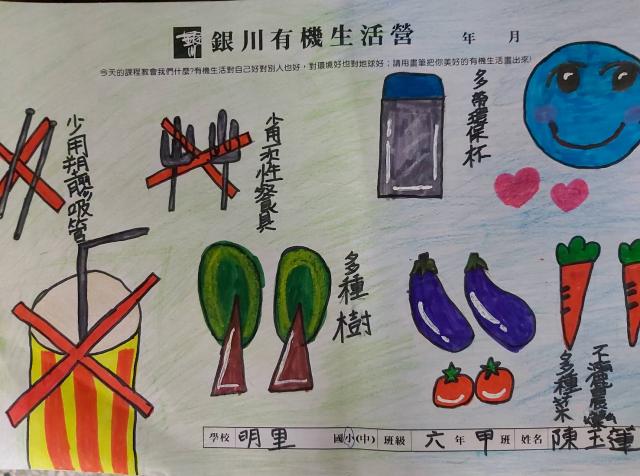 銀川有機生活營
年 月
今天的課程教會我們什麼?有機生活對自己好對別人也好，對環境好也對地球好；請用畫筆把你美好的有機生活畫出來!
少用塑膠吸管
少用一次性餐具
多帶環保杯
多種樹
不灑農藥
多種菜
學校 明里 國小(中) 班級 六 年 甲 班 姓名 陳玉蓮